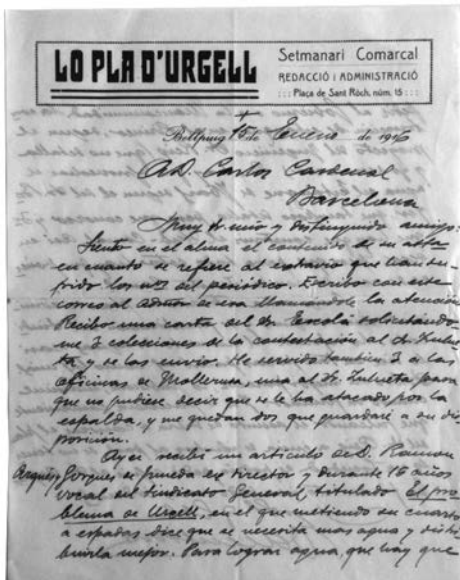 LO PLA D'URGELL
Setmanari Comarcal
REDACCIÓ i ADMINISTRACIÓ
::: Plaça de Sant Ròch, núm. 15 :::
Bellpuig 15 de Enero de 1916
A D. Carlos Cardenal
Barcelona
Muy Sr. mío y distinguido amigo:
Siento en el alma el contenido de su atta
en cuanto se refiere al extravío que han su-
frido los nos del periódico. Escribo con este
correo al Admor de esa llamándole la atención
Recibo una carta del Sr. Escolá solicitándo
me 3 colecciones de la contestación al Sr. Zulue
ta, y se las envío. He servido también 3 a las
oficinas de Mollerusa, una al Sr. Zulueta para
que no pudiese decir que se le ha atacado por la
espalda, y me quedan dos que guardaré a su dis
posición.
Ayer recibí un artículo de D. Ramon
Arqués, Gorques de Juneda ex director y durante 16 años
vocal del Sindicato General, titulado El pro
blema de Urgell, en el que metiendo su cuarto
a espadas dice que se necesita mas agua y distri
buirla mejor. Para lograr agua, que hay que